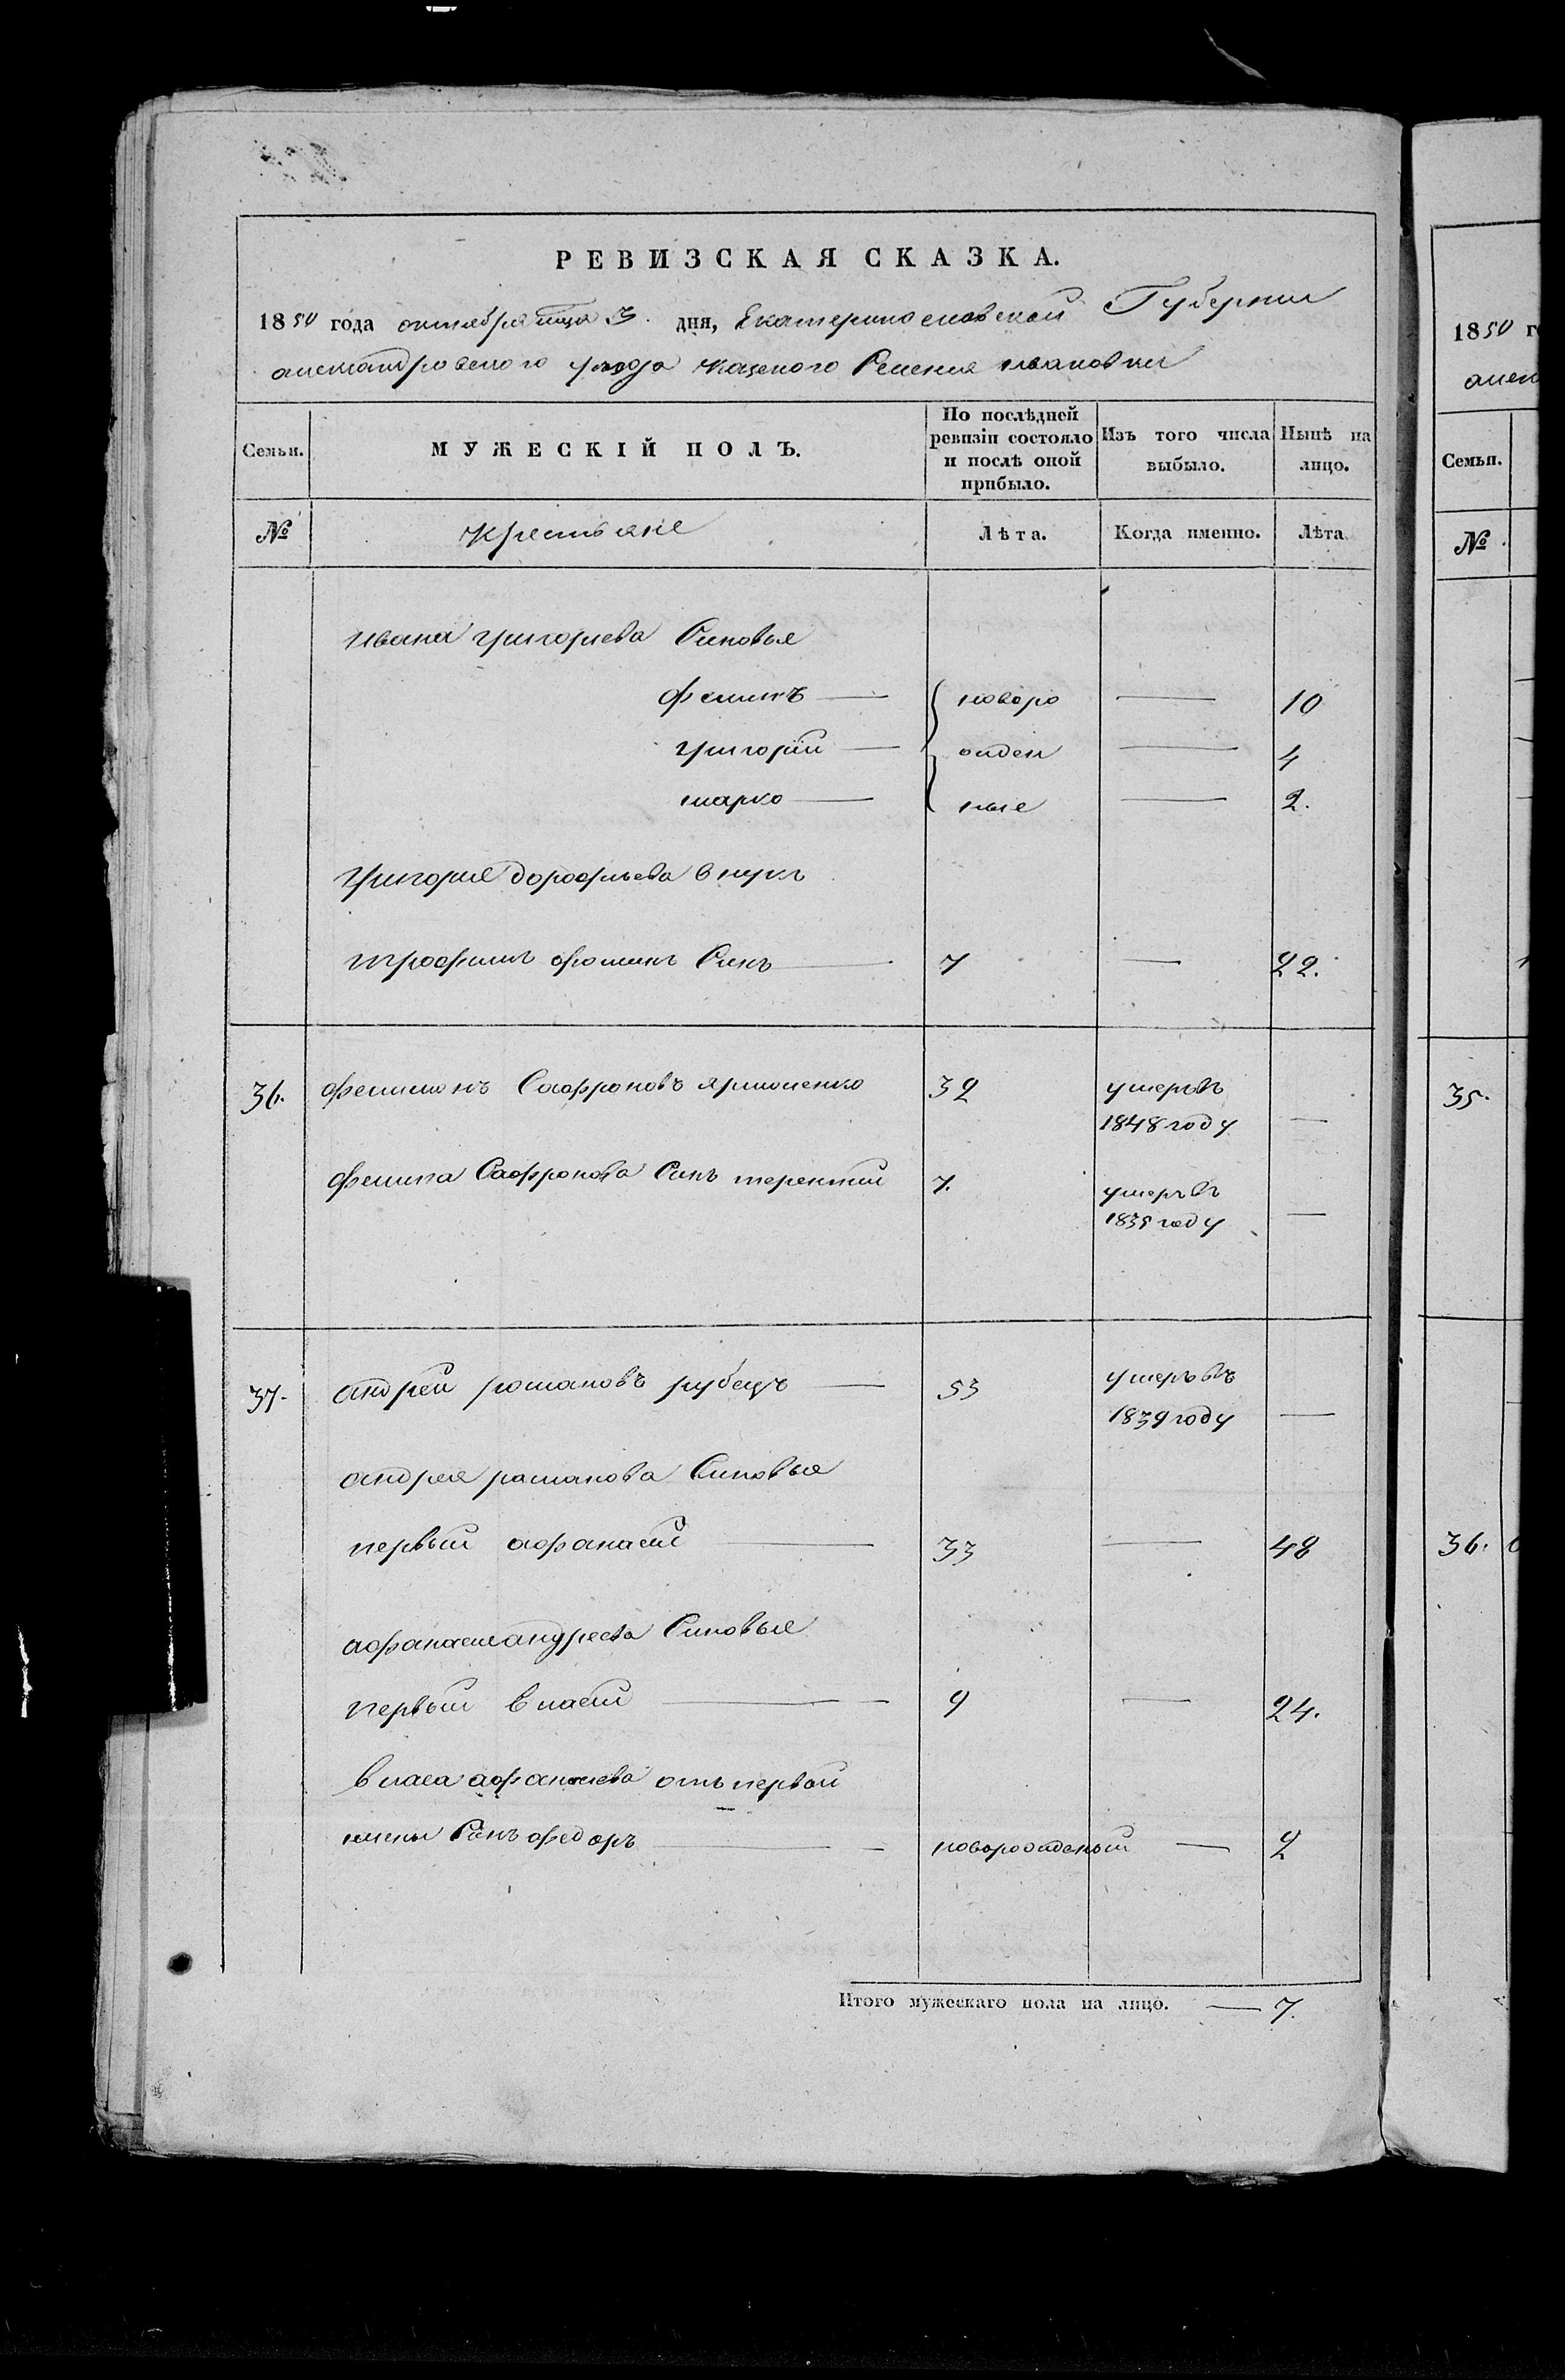 РЕВИЗСКАЯ СКАЗКА.
1850 года октября мца 3. дня, Екатеринославской Губернии
александровского уезда казеного Селения ивановки
Семьи. МУЖЕСКІЙ ПОЛЪ. По послѣдней ревизіи состояло и послѣ оной прибыло. Изъ того числа выбыло. Нынѣ на лицо.
№ крестьяне Лѣта. Когда именно. Лѣта
ивана григориева Синовья
новоро — 10
григории — жден — 4
марко — ные — 2.
григория дорофиева внукъ
трофимъ фоминъ Синъ — 7 — 22.
36. Сафроновъ ярмоленко 32 умеръ въ
1848 году —
Сафронова Синъ терентии 7. умеръ въ
1835 году —
37. андреи романовъ рубецъ — 53 умеръ въ
1839 году —
андрея романова Синовья
первыи афанасии — 33 — 48
афанасия андреева Синовья
первыи власии — 9 — 24.
власа афанасиева отъ первои
жены Синъ федоръ — новорожденыи — 2
Итого мужескаго пола на лицо. — 7.
1850 г
Семьи.
№
35.
36.